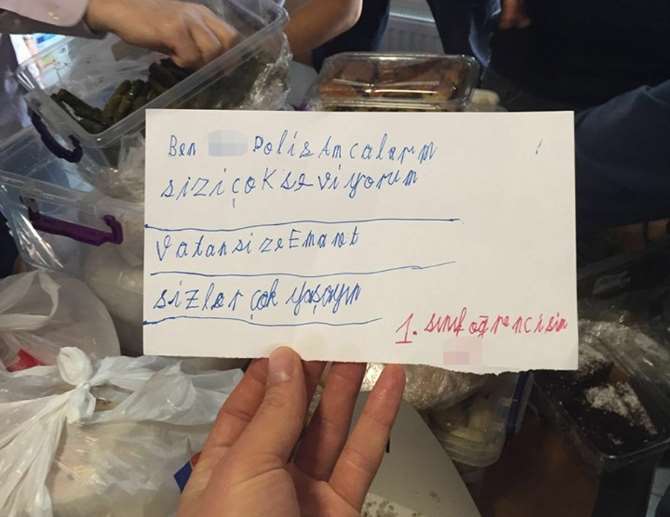 Ben Polis Amcalarım
sizi çok seviyorum
Vatan size Emanet
sizler çok yaşayın
1. sınıf öğrencisin